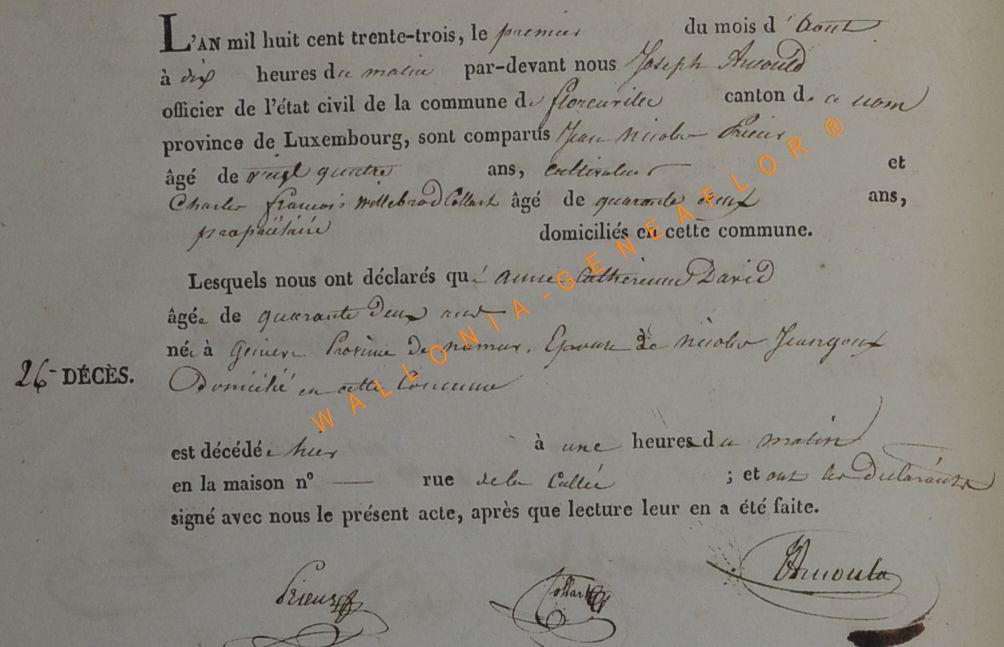 L'AN mil huit cent trente-trois, le premier du mois d'Aout
à dix heures du matin par-devant nous Joseph Arnould
officier de l'état civil de la commune de florenville canton de ce nom
province de Luxembourg, sont comparus Jean Nicolas Prieur
âgé de vingt quatre ans, cultivateur et
Charles François Willebrod Collart âgé de quarante deux ans,
propriétaire domiciliés en cette commune.
Lesquels nous ont déclarés qu'anne Catherinne David
âgée de quarante deux ans
née à Province de namur, Epouse de nicolas
Domicilié en cette Commune
26 DÉCÈS.
est décédée hier à une heures du matin
en la maison nº — rue de la ; et ont les Déclarants
signé avec nous le présent acte, après que lecture leur en a été faite.
Prieur Collart Arnould
WALLONIA-GENEAFLOR ®